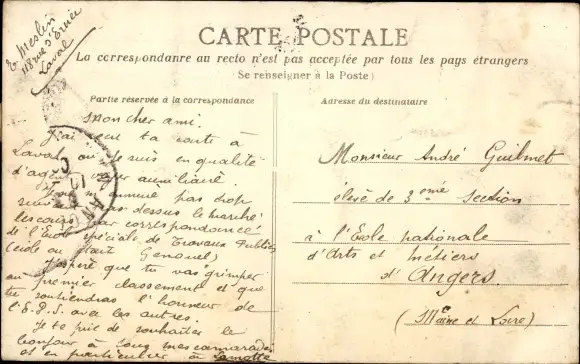 E Merlin
118 rue d'Ernée
Laval
CARTE POSTALE
La correspondanre au recto n'est pas acceptée par tous les pays étrangers
(Se renseigner à la Poste)
Partie réservée à la correspondance
Mon cher ami.
J'ai reçu ta carte à
Laval où je suis en qualité
d'agent voyer auxiliaire.
m'ennuie pas trop
pas dessus le marché
les cours par correspondance
de l'Ecole spéciale de Travaux Publics
(école
J'espère que tu vas grimper
au premier classement et que
tu soutiendras l'honneur de
l'E.P.S. avec les autres.
Je te prie de souhaiter le
bonjour à tous mes camarades
et en particulier à Lamotte
Adresse du destinataire
Monsieur André Guilmet
élève de 3ème section
à l'Ecole nationale
d'Arts et Métiers
d'Angers.
(Maine et Loire)